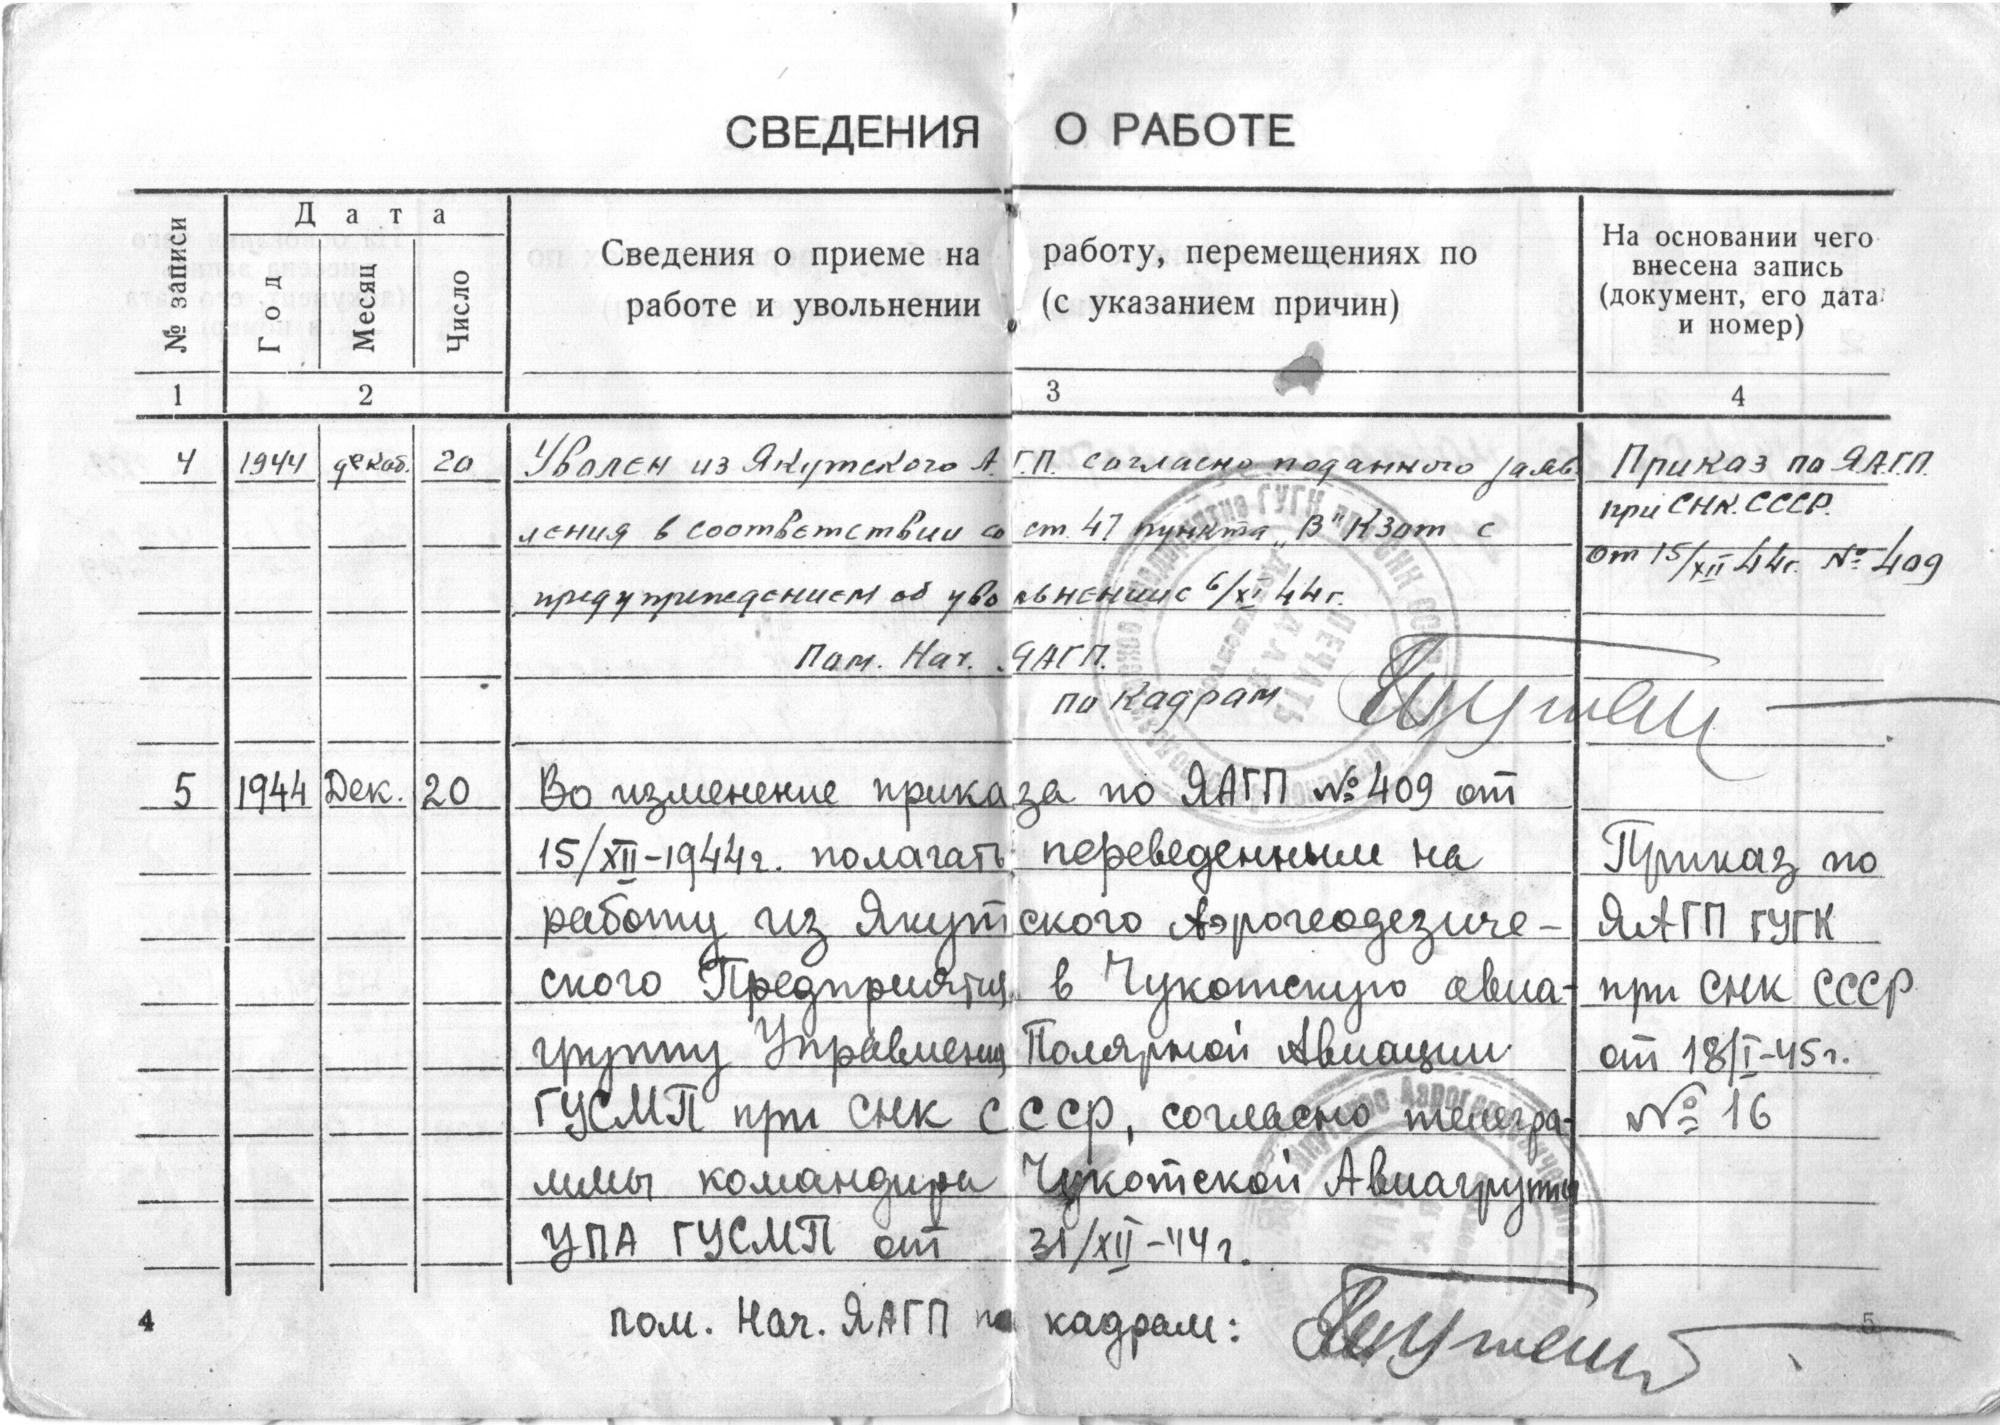 СВЕДЕНИЯ О РАБОТЕ
№ записи
Дата
Год
Месяц
Число
Сведения о приеме на работу, перемещениях по
работе и увольнении (с указанием причин)
На основании чего
внесена запись
(документ, его дата
и номер)
1 2 3 4
4 1944 декаб. 20 Уволен из Якутского А.Г.П. согласно поданного заяв-
ления в соответствии со ст. 47 пункта „В" КЗот с
предупреждением об увольнении с 6/XI 44г.
Пом. Нач. ЯАГП.
по Кадрам
Приказ по ЯАГП.
при СНК. СССР.
от 15/XII 44г. № 409
5 1944 Дек. 20 Во изменение приказа по ЯАГП № 409 от
15/XII-1944г. полагать переведенным на
работу из Якутского Аэрогеодезиче-
ского Предприятия в Чукотскую авиа-
группу Управления Полярной Авиации
ГУСМП при СНК СССР, согласно телегра-
ммы командира Чукотской Авиагруппы
УПА ГУСМП от 31/XII-44г.
Приказ по
ЯАГП ГУГК
при СНК СССР
от 18/I-45г.
№ 16
пом. Нач. ЯАГП по кадрам:
4
5
ГУГК при СНК СССР
ПЕЧАТЬ
Якутское Аэрогеодезическое